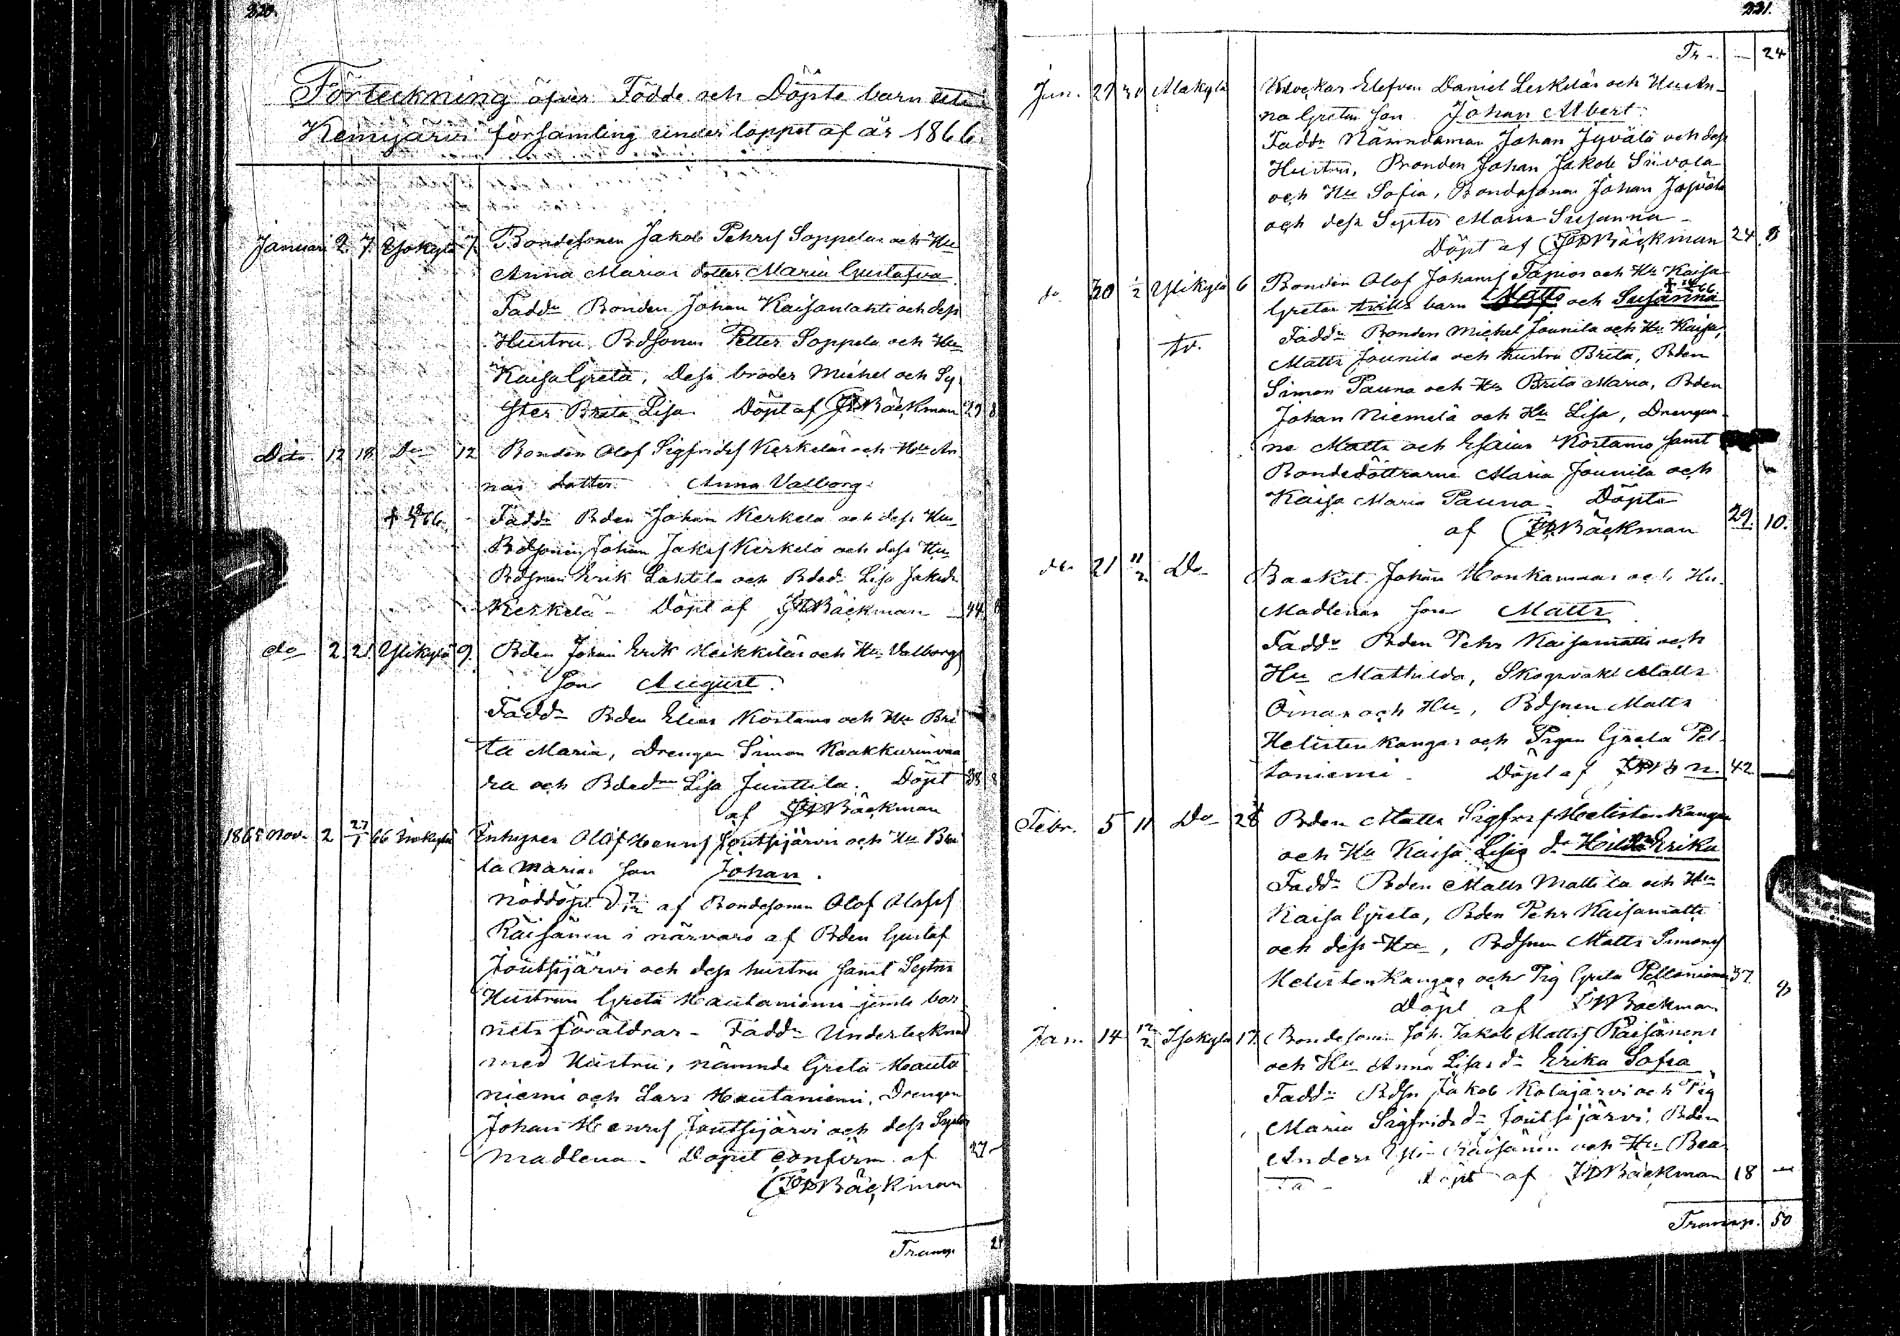 220.
Förteckning öfver Födde och Döpte barn uti
Kemijärvi församling under loppet af år 1866.
Januari 2 7 Isokylä 7. Bondesonen Jakob Pehrsf Soppelas och Hu
Anna Marias dotter Maria Gustafva
Fadd. Bonden Johan Kaisanlahti och dess
Hustru, Bdsonen Petter Soppela och Hu
Kaisa Greta, dess broder Michel och Sy-
ster Brita Lisa. Döpt af JP Bäckman 29 8
Dito 12 18 Do 12 Bonden Olof Sigfridsf Kerkeläs och Hu An
nas dotter Anna Valborg.
Fadd. Bden Johan Kerkelä och dess Hu
Bdsonen Johan Jaksf Kerkelä och dess Hu
Bdsonen Erik Lahtela och Bdad. Lisa Jakobsd.
Kerkelä - Döpt af JP Bäckman 44
do 2 21 Ylikylä 9. Bden Johan Erik Heikkiläs och Hu Valborgs
son August.
Fadd. Bden Elias Kostamo och Hu Bri
ta Maria, Drengen Simon Kaakkurinvaa
ra och Bdad. Lisa Junttila. Döpt 38 8
af JP Bäckman
1865 Nov. 2 27/1 66 Inhyses Olof Henrsf Joutsijärvi och Hu Bri
ta Marias son Johan.
Nöddöpt af Bondesonen Olof Olofsf
Räisänen i närvaro af Bden Gustaf
Joutsijärvi och dess hustru samt Sytn.
Hustrun Greta Hautaniemi jemte bar-
nets föräldrar - Fadd. Undertecknad
med Hustru, nämnde Greta Hauta
niemi och Lars Hautaniemi, Drengen
Johan Henrsf Joutsijärvi och dess Syster
Madlena. Döpet confirm. af 27 -
JP Bäckman
Transp. 24
221.
Tr. - 24
Jan. 27 Alakylä Klockar Elefven Daniel Leskeläs och Hu An-
na Gretas son Johan Albert.
Fadd. Nämndeman Johan Jyvälä och dess
Hustru, Bonden Johan Jakob Siivola
och Hu Sofia, Bondesonen Johan Jyvälä
och dess Syster Maria Susanna -
Döpt af JP Bäckman 24 8
do 30 1/2 Ylikylä 6 Bonden Olof Johansf Tapios och Hu Kaisa
Gretas barn Matts och Susanna
Fadd. Bonden Michel Jounila och Hu Kaisa,
tv. Matts Jounila och hustru Brita, Bden
Simon Pauna och Hu Brita Maria, Bden
Johan Niemelä och Hu Lisa, Drengar-
ne Matts och Esaias Kostamo samt
Bondedöttrarne Maria Jounila och
Kaisa Maria Pauna. Döpte
af JP Bäckman 29. 10.
do 21 11/2 Do Backst. Johan Honkamaas och Hu
Madlenas son Matts
Fadd. Bden Pehr Kaisamatti och
Hu Mathilda, Skogsvakt Matts
Oinas och Hu, Bdsonen Matts
Helistenkangas och Pigan Greta Pel-
toniemi. Döpt af JP B n. 42 -
Febr. 5 11 Do 28 Bden Matts Sigfrsf Helistenkangas
och Hu Kaisa Lisas dr. Hilda Erika
Fadd. Bden Matts Mattila och Hu
Kaisa Greta, Bden Pehr Kaisamatti
och dess Hu, Bdsonen Matts Simonsf
Helistenkangas och Pig. Greta Peltoniemi 37
Döpt af JP Bäckman
Jan. 14 12/2 Isokylä 17. Bondesonen Joh. Jakob Mattsf Räisänens
och Hu Anna Lisas dr. Erika Sofia
Fadd. Bdsn. Jakob Kalajärvi och Pig.
Maria Sigfridsdr. Joutsijärvi, Bden
Anders Yli-Räisänen och Hu Bea-
ta - Döpt af JP Bäckman 18 -
Transp. 50